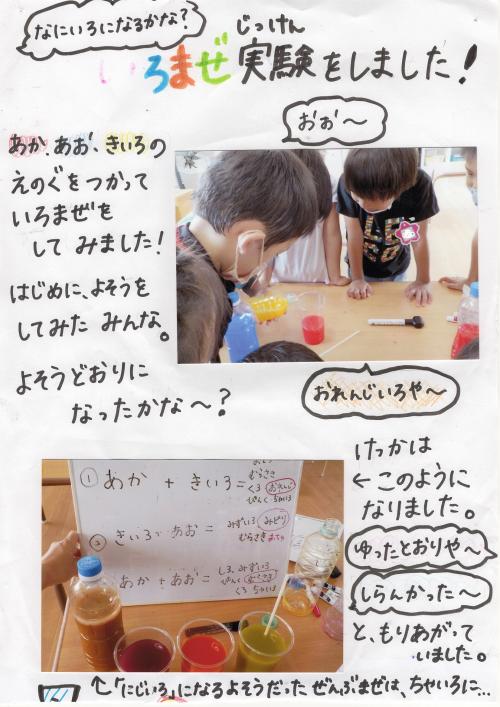 なにいろになるかな？
じっけん
いろまぜ実験をしました！
おぉ～
あか、あお、きいろの
えのぐをつかって
いろまぜを
してみました！
はじめに、よそうを
してみた みんな。
よそうどおりに
なったかな～？
おれんじいろや～
① あか + きいろ =
むらさき
くろ おれんじ
ぴんく ちゃいろ
② きいろ + あお =
みずいろ みどり
むらさき
あか + あお =
しろ みずいろ
ぴんく むらさき
くろ ちゃいろ
けっかは
← このように
なりました。
ゆったとおりや～
しらんかった～
と、もりあがって
いました。
↑「にじいろ」になるよそうだった ぜんぶまぜは、ちゃいろに…